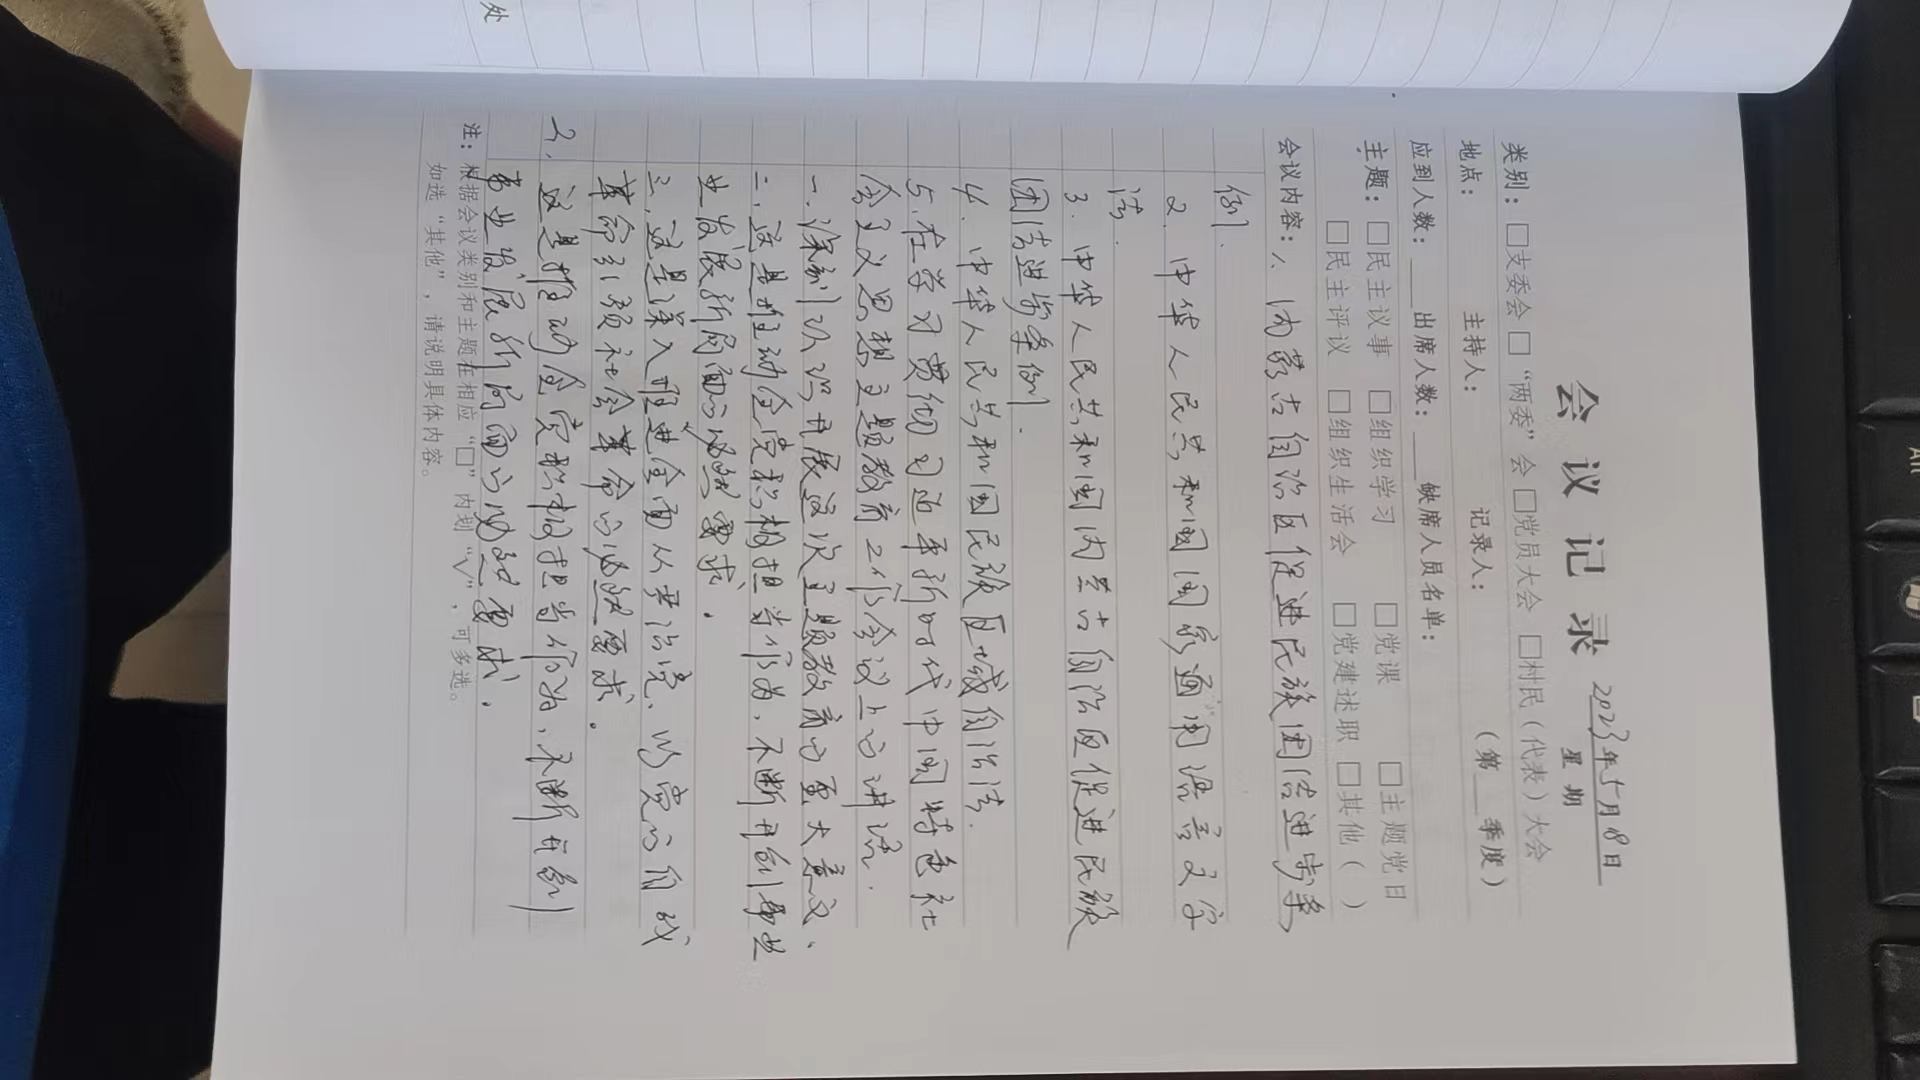 处
会议记录
2023年5月8日
星期
类别：□支委会 □“两委”会 □党员大会 □村民（代表）大会
地点： 主持人： 记录人： （第___季度）
应到人数：___出席人数：___缺席人员名单：
主题：□民主议事 □组织学习 □党课 □主题党日
□民主评议 □组织生活会 □党建述职 □其他（ ）
会议内容：1、内蒙古自治区促进民族团结进步条
例.
2、中华人民共和国国家通用语言文字
法.
3、中华人民共和国内蒙古自治区促进民族
团结进步条例.
4、中华人民共和国民族区域自治法.
5、在学习贯彻习近平新时代中国特色社
会主义思想主题教育工作会议上的讲话.
一、深刻认识开展这次主题教育的重大意义、
二、这是推动全党积极担当作为、不断开创事业
业发展新局面的必然要求.
三、这是深入推进全面从严治党、以党的自我
革命引领社会革命的必然要求.
2、这是推动全党积极担当作为、不断开创
事业发展新局面的必然要求.
注：根据会议类别和主题在相应“□”内划“√”，可多选。
如选“其他”，请说明具体内容。
Alt